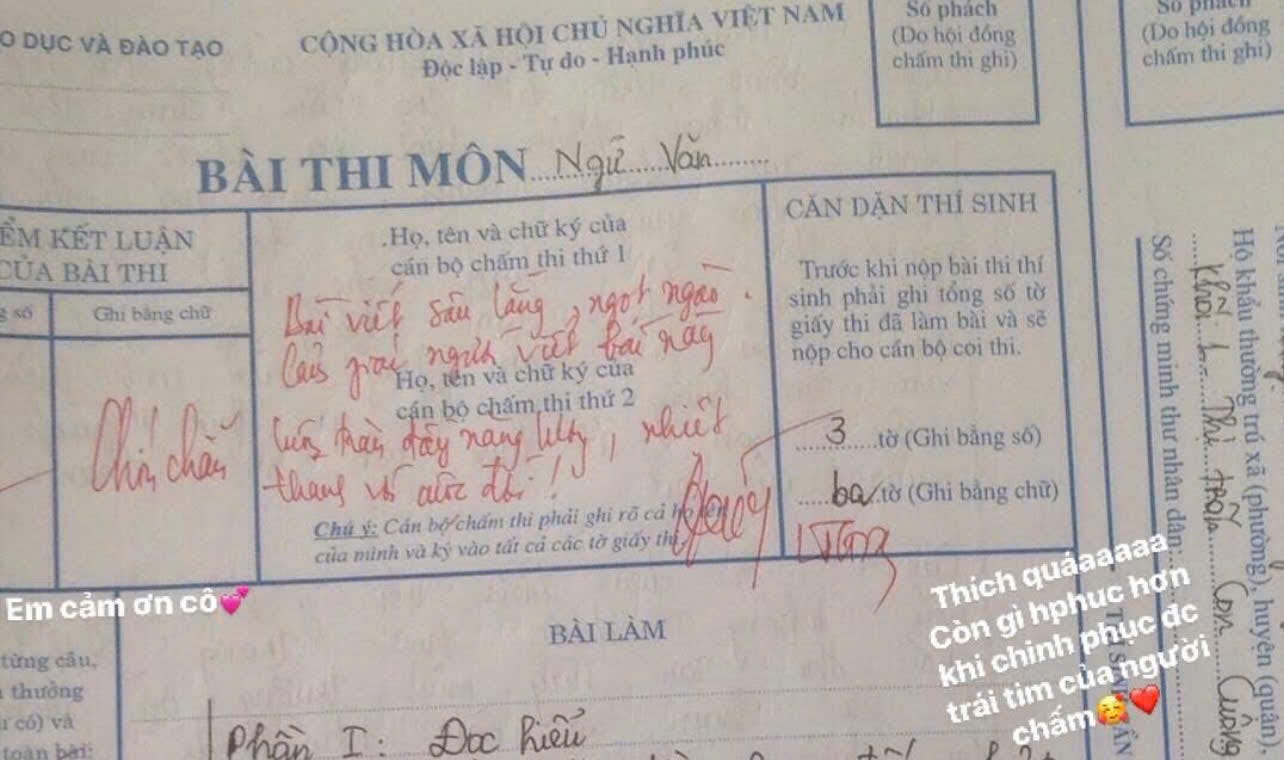 O DỤC VÀ ĐÀO TẠO
CỘNG HÒA XÃ HỘI CHỦ NGHĨA VIỆT NAM
Độc lập - Tự do - Hạnh phúc
Số phách
(Do hội đồng
chấm thi ghi)
Số phách
(Do hội đồng
chấm thi ghi)
BÀI THI MÔN Ngữ Văn
ỂM KẾT LUẬN
CỦA BÀI THI
g số
Ghi bằng chữ
Chín chẵn
Họ, tên và chữ ký của
cán bộ chấm thi thứ 1
Bài viết sâu lắng, ngọt ngào.
người viết bài này
Họ, tên và chữ ký của
cán bộ chấm thi thứ 2
luôn tràn đầy năng lượng, nhiệt
thành với cuộc đời!
Chú ý: Cán bộ chấm thi phải ghi rõ cả họ tên
của mình và ký vào tất cả các tờ giấy thi
CĂN DẶN THÍ SINH
Trước khi nộp bài thi thí
sinh phải ghi tổng số tờ
giấy thi đã làm bài và sẽ
nộp cho cán bộ coi thi.
3 tờ (Ghi bằng số)
ba tờ (Ghi bằng chữ)
Em cảm ơn cô💕
Thích quáaaaaa
Còn gì hphuc hơn
khi chinh phục đc
trái tim của người
chấm🥰❤️
BÀI LÀM
từng câu,
thưởng
có) và
toàn bài:
Phần I: Đọc hiểu
Số chứng minh thư nhân dân:
Hộ khẩu thường trú xã (phường), huyện (quận),
Thị trấn Con Cuông